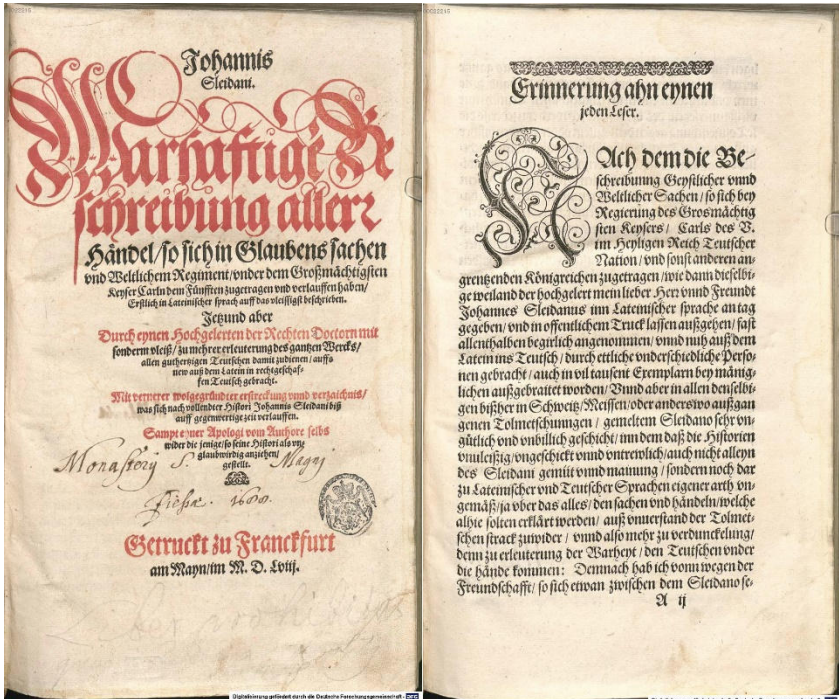 Johannis
Sleidani.
Warhafftige Be
schreibung allerr
Händel/ so sich in Glaubens sachen
vnd Weltlichem Regiment/ vnder dem Großmächtigsten
Keyser Carln dem Fünfften zugetragen vnd verlauffen haben/
Erstlich in Lateinischer sprach auff das vleissigst beschrieben.
Jetzund aber
Durch eynen Hochgelerten der Rechten Doctorn mit
sonderm vleiß/ zu mehrer erleuterung des gantzen Wercks/
allen guthertzigen Teutschen damit zudienen/ auffs
new auß dem Latein in rechtgeschaf-
fen Teutsch gebracht.
Mit vernerer wolgegründter erstreckung vnnd verzaichnis/
was sich nach vollendter Histori Johannis Sleidani biß
auff gegenwertige zeit verlauffen.
Sampt eyner Apologi vom Authore selbs
wider die jenige/ so seine Histori als vn-
glaubwirdig anziehen/
gestelt.
Monasterij S. Magnj
1600.
Getruckt zu Franckfurt
am Mayn/ im M. D. Lviij.
Digitalisierung gefördert durch die Deutsche Forschungsgemeinschaft - DFG
Erinnerung ahn eynen
jeden Leser.
NAch dem die Be-
schreibunng Geystlicher vnnd
Weltlicher Sachen/ so sich bey
Regierung des Grosmächtig
sten Keysers/ Carls des V.
im Heyligen Reich Teutscher
Nation/ vnd sonst anderen an-
grentzenden Königreichen zugetragen/ wie dann dieselbi-
ge weiland der hochgelert mein lieber Herr vnnd Freundt
Johannes Sleidanus inn Lateinischer sprache an tag
gegeben/ vnd in offentlichem Truck lassen außgehen/ fast
allenthalben begirlich angenommen/ vnnd nuh auß dem
Latein ins Teutsch/ durch ettliche vnderschiedliche Perso-
nen gebracht/ auch in vil tausent Exemplarn bey mänig-
lichen außgebraitet worden/ Vnnd aber in allen denselbi-
gen bißher in Schweitz/ Meissen/ oder anderswo außgan
genen Tolmetschunngen/ gemeltem Sleidano sehr vn-
gütlich vnd vnbillich geschicht/ inn dem daß die Historien
vnuleissig/ vngeschickt vnnd vntrewlich/ auch nicht alleyn
des Sleidani gemüt vnnd mainung/ sondern noch dar
zu Lateinischer vnd Teutscher Sprachen eigener arth vn-
gemäß/ ja vber das alles/ den sachen vnd händeln/ welche
alhie solten erklärt werden/ auß vnuerstand der Tolmet-
schen strack zuwider/ vnnd also mehr zu verdunckelung/
denn zu erleuterung der Warheyt/ den Teutschen vnder
die hände kommen: Demnach hab ich vonn wegen der
Freundschafft/ so sich etwan zwischen dem Sleidano se-
A ij